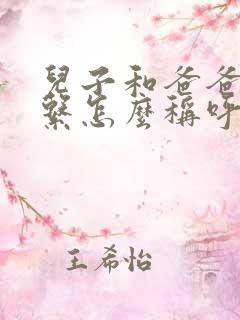 兒子和爸爸
繫怎麼稱呼
王希怡